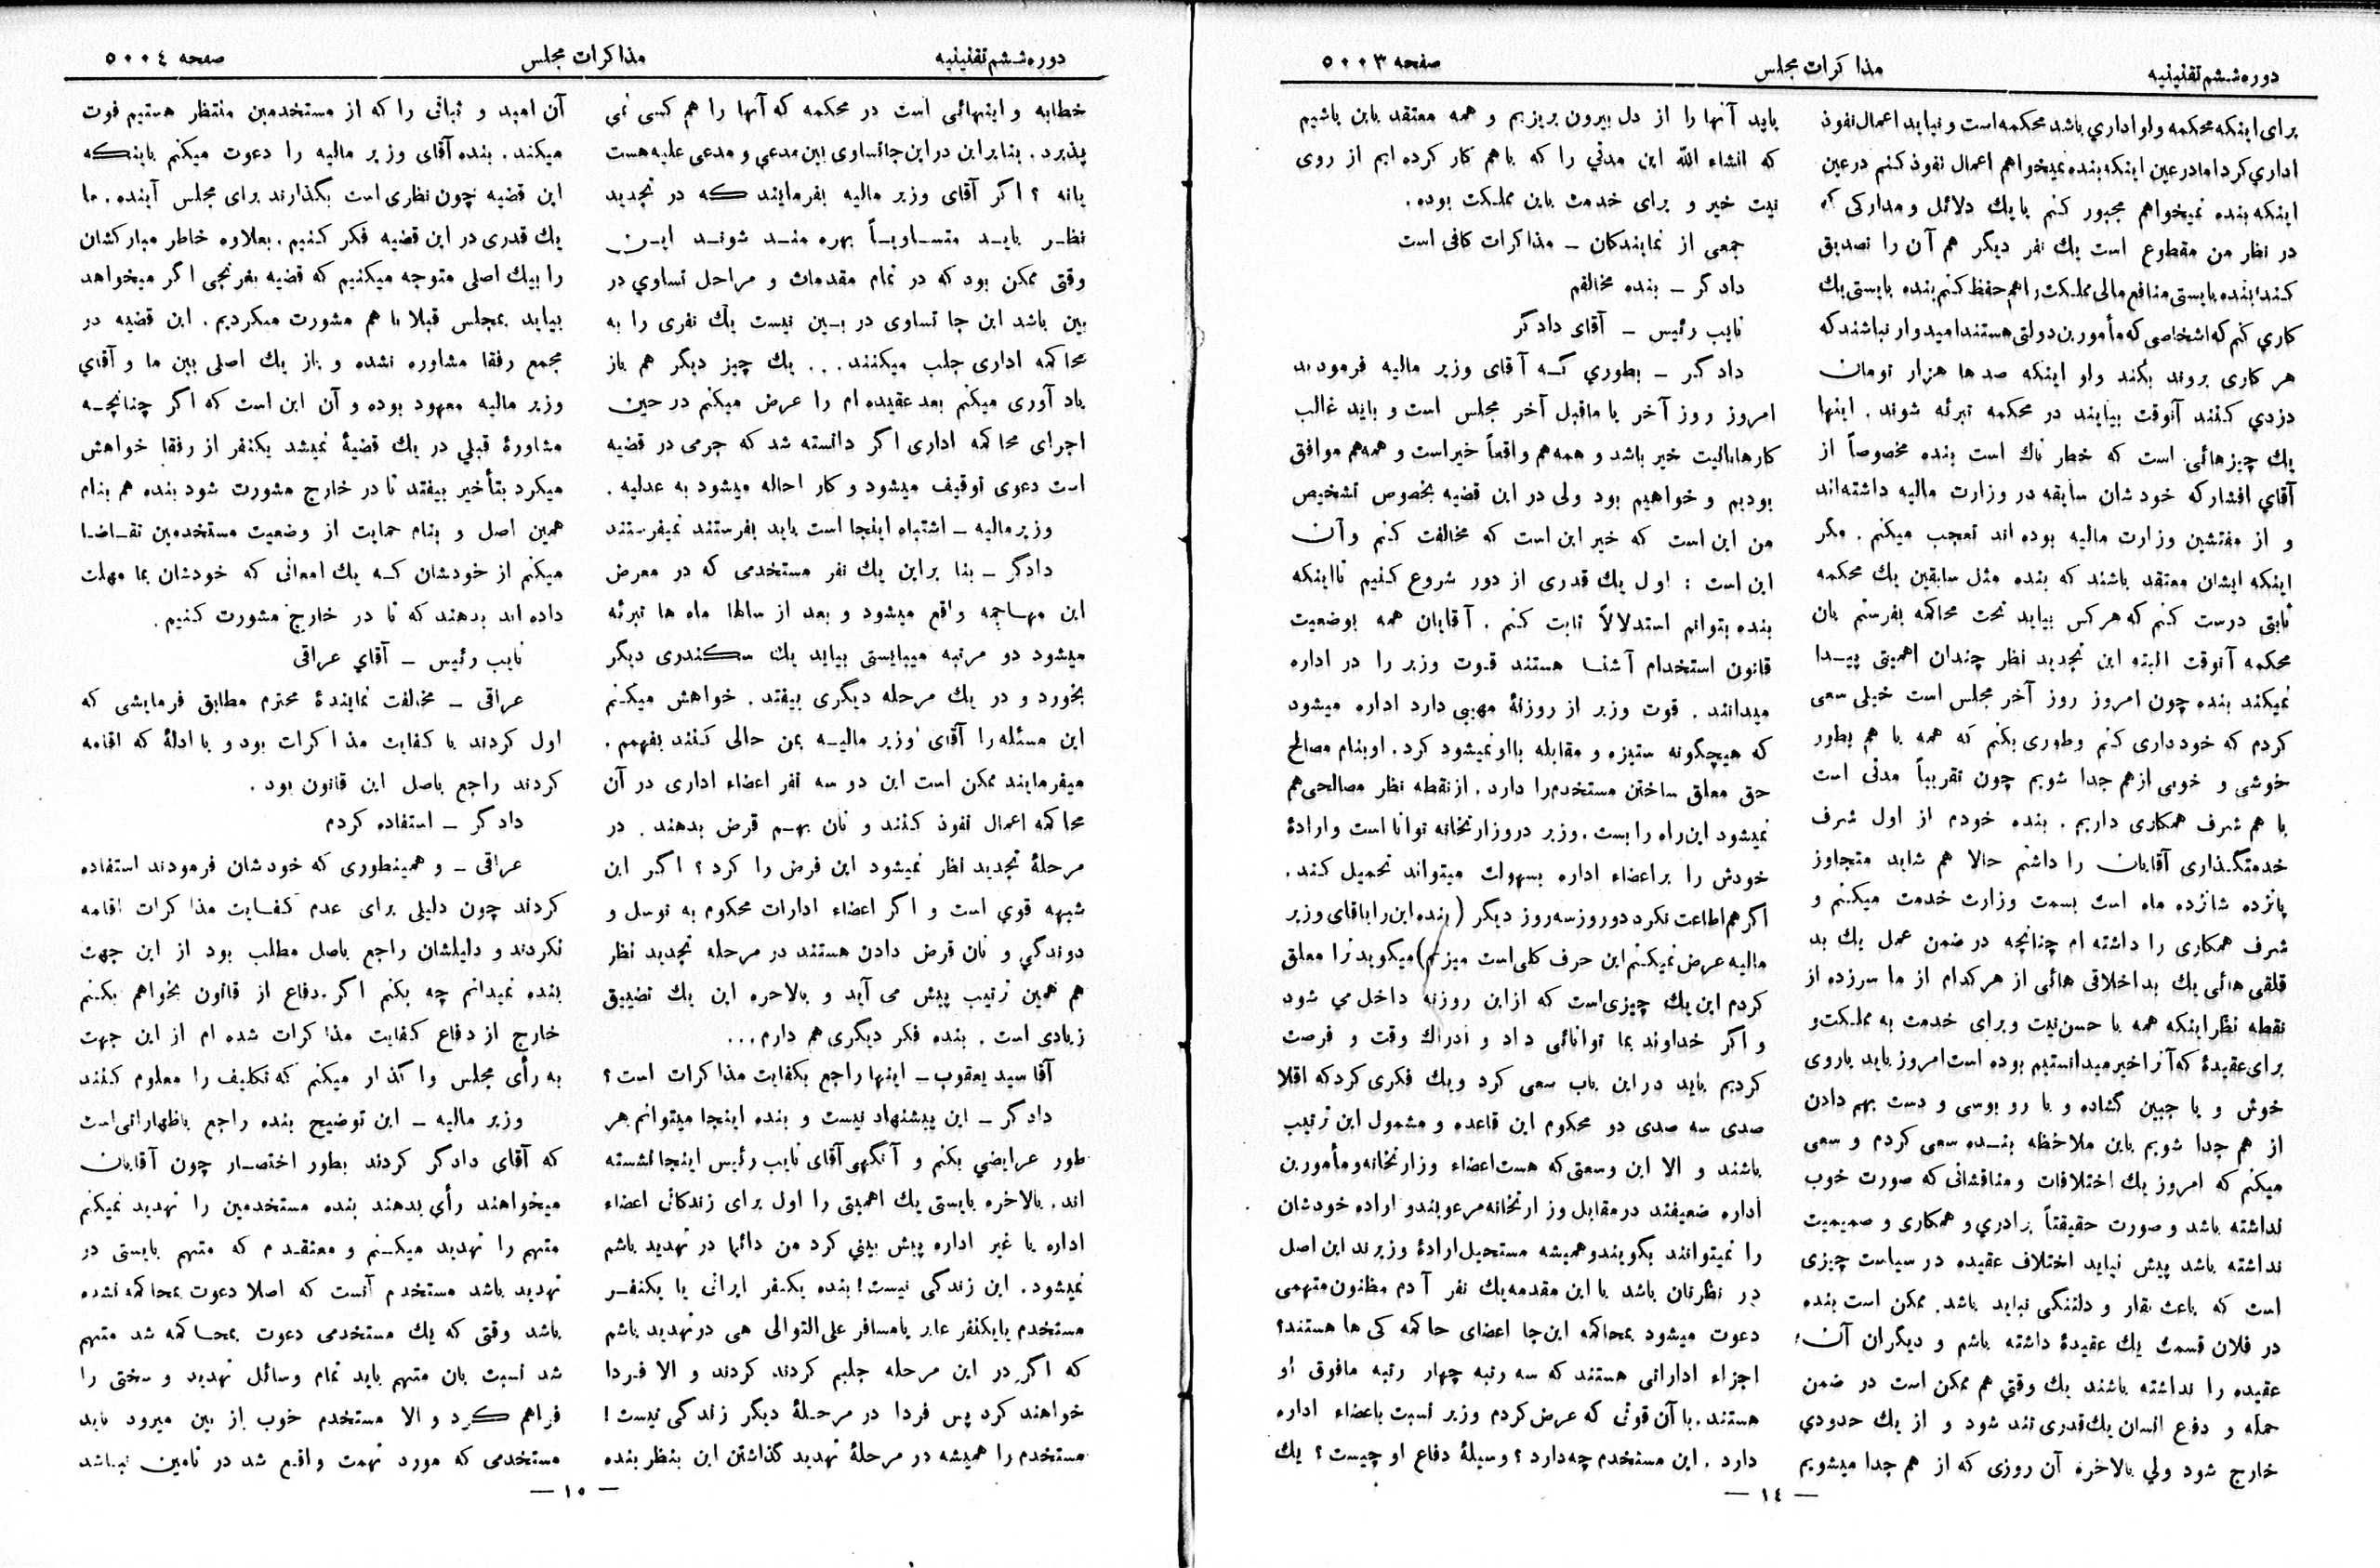 دوره ششم تقنینیه
مذاکرات مجلس
صفحه ۵۰۰۳
برای اینکه محکمه ولو اداري باشد محکمه است و نباید اعمال نفوذ
اداري کرد اما در عین اینکه بنده نمیخواهم اعمال نفوذ کنم در عین
اینکه بنده نمیخواهم مجبور کنم با یك دلائل و مدارکی که
در نظر من مقطوع است یك نفر دیگر هم آن را تصدیق
کند بنده بایستی منافع مالی مملکت را هم حفظ کنم بنده بایستی یك
کاري کنم که اشخاصی که مأمورین دولتی هستند امیدوار نباشند که
هر کاری بروند بکنند ولو اینکه صدها هزار تومان
دزدي کنند آنوقت بیایند در محکمه تبرئه شوند . اینها
یك چیزهائی است که خطر ناك است بنده مخصوصاً از
آقاي افشار که خودشان سابقه در وزارت مالیه داشته‌اند
و از مفتشین وزارت مالیه بوده اند تعجب میکنم . مگر
اینکه ایشان معتقد باشند که بنده مثل سابقین یك محکمه
ثابتی درست کنم که هر کس بیاید تحت محاکمه بفرستم بان
محکمه آنوقت البته این تجدید نظر چندان اهمیتی پیـدا
نمیکند بنده چون امروز روز آخر مجلس است خیلی سعی
کردم که خود داری کنم وطوری بکنم که همه با هم بطور
خوشی و خوبی ازهم جدا شویم چون تقریباً مدتی است
با هم شرف همکاری داریم . بنده خودم از اول شرف
خدمتگـذاری آقایان را داشتم حالا هم شاید متجاوز
پانزده شانزده ماه است بسمت وزارت خدمت میکنم و
شرف همکاری را داشته ام چنانچه در ضمن عمل یك بد
قلقی هائی یك بد اخلاقی هائی از هر کدام از ما سرزده از
نقطه نظر اینکه همه با حسن نیت و برای خدمت به مملکت و
برای عقیدۀ که آنرا خیر میدانستیم بوده است امروز باید باروی
خوش و با جبین گشاده و با رو بوسی و دست بهم دادن
از هم جدا شویم باین ملاحظه بنـده سعی کردم و سعی
میکنم که امروز یك اختلافات و مناقشاتی که صورت خوب
نداشته باشد و صورت حقیقتاً برادري و همکاری و صمیمیت
نداشته باشد پیش نیاید اختلاف عقیده در سیاست چیزی
است که باعث نقار و دلتنگی نباید باشد. ممکن است بنده
در فلان قسمت یك عقیدۀ داشته باشم و دیگران آن
عقیده را نداشته باشند یك وقتي هم ممکن است در ضمن
حمله و دفاع انسان یك قدری تند شود و از یك حدودي
خارج شود ولي بالاخره آن روزی که از هم جدا میشویم
باید آنها را از دل بیرون بریزیم و همه معتقد باین باشیم
که انشاء الله این مدتي را که باهم کار کرده ایم از روی
نیت خیر و برای خدمت باین مملکت بوده .
جمعی از نمایندکان ـ مذاکرات کافی است
دادگر ـ بنده مخالفم
نایب رئیس ـ آقای دادگر
دادگر ـ بطوري کـه آقای وزیر مالیه فرمودند
امروز روز آخر یا ماقبل آخر مجلس است و باید غالب
کارها بالنیت خیر باشد و همه هم واقعاً خیر است و همه هم موافق
بودیم و خواهیم بود ولی در این قضیه بخصوص تشخیص
من این است که خیر این است که مخالفت کنم و آن
این است : اول یك قدری از دور شروع کنیم تااینکه
بنده بتوانم استدلالاً ثابت کنم . آقایان همه بوضعیت
قانون استخدام آشنـا هستند قـوت وزیر را در اداره
میدانند . قوت وزیر از روزنۀ مهیبی دارد اداره میشود
که هیچگونه ستیزه و مقابله بااو نمیشود کرد. او بنام مصالح
حق معلق ساختن مستخدم را دارد . از نقطه نظر مصالحی هم
نمیشود این راه را بست . وزیر در وزارتخانه توانا است و ارادۀ
خودش را بر اعضاء اداره بسهولت میتواند تحمیل کند .
اگر هم اطاعت نکرد دو روز سه روز دیگر ( بنده این را باقای وزیر
مالیه عرض نمیکنم این حرف کلی است میزنم ) میگوید ترا معلق
کردم این یك چیزی است که از این روزنه داخل مي شود
و اگر خداوند بما توانائی داد و ادراك وقت و فرصت
کردیم باید در این باب سعی کرد و یك فکری کرد که اقلا
صدی سه صدی دو محکوم این قاعده و مشمول این ترتیب
باشند و الا این وسعتی که هست اعضاء وزارتخانه و مأمورین
اداره ضعیفند در مقابل وزارتخانه مرعوبند و اراده خودشان
را نمیتوانند بگویند و همیشه مستحیل ارادۀ وزیرند این اصل
در نظرتان باشد با این مقدمه یك نفر آدم مظنون متهمی
دعوت میشود بمحاکمه این جا اعضای حاکمه کی ها هستند؟
اجزاء اداراتی هستند که سه رتبه چهار رتبه مافوق او
هستند . با آن قوتی که عرض کردم وزیر نسبت باعضاء اداره
دارد . این مستخدم چه دارد ؟ وسیلۀ دفاع او چیست ؟ یك
— ۱٤ —
دوره ششم تقنینیه
مذاکرات مجلس
صفحه ۵۰۰٤
خطابه و اینهائی است در محکمه که آنها را هم کسی نمی
پذیرد . بنابراین در این جا تساوی بین مدعي و مدعی علیه هست
یا نه ؟ اگر آقای وزیر مالیه بفرمایند کـه در تجدید
نظـر بایـد متسـاویـاً بهره منـد شونـد ایـن
وقتی ممکن بود که در تمام مقدمات و مراحل تساوي در
بین باشد این جا تساوی در بـین نیست یك نفری را به
محاکمه اداری جلب میکنند . . . یك چیز دیگر هم باز
یاد آوری میکنم بعد عقیده ام را عرض میکنم در حین
اجرای محاکمه اداری اگر دانسته شد که جرمی در قضیه
است دعوی توقیف میشود و کار احاله میشود به عدلیه .
وزیر مالیه ـ اشتباه اینجا است باید بفرستند نمیفرستند
دادگر ـ بنا براین یك نفر مستخدمی که در معرض
این مهـاجمه واقع میشود و بعد از سالها ماه ها تبرئه
میشود دو مرتبه میبایستی بیاید یك سکندری دیگر
بخورد و در یك مرحله دیگری بیفتد . خواهش میکنم
این مسئله را آقای وزیر مالیـه بمن حالی کنند بفهمم .
میفرمایند ممکن است این دو سه نفر اعضاء اداری در آن
محاکمه اعمال نفوذ کنند و نان بهـم قرض بدهند . در
مرحلۀ تجدید نظر نمیشود این فرض را کرد ؟ اگر این
شبهه قوي است و اگر اعضاء ادارات محکوم به توسل و
دوندگي و نان قرض دادن هستند در مرحله تجدید نظر
هم همین ترتیب پیش می آید و بالاخره این یك تضییق
زیادی است . بنده فکر دیگری هم دارم . . .
آقا سید یعقوب ـ اینها راجع بکفایت مذاکرات است ؟
دادگر ـ این پیشنهاد نیست و بنده اینجا میتوانم هر
طور عرایضي بکنم و آنگهی آقای نایب رئیس اینجا نشسته
اند. بالاخره بایستی یك اهمیتی را اول برای زندگانی اعضاء
اداره یا غیر اداره پیش بیني کرد من دائما در تهدید باشم
نمیشود . این زندگی نیست ! بنده یکنفر ایرانی یا یکنفـر
مستخدم یا یکنفر عابر یا مسافر علی التوالی هی در تهدید باشم
که اگر در این مرحله جلبم کردند کردند و الا فـردا
خواهند کرد پس فردا در مرحـلۀ دیگر زندگی نیست !
مستخدم را همیشه در مرحلۀ تهدید گذاشتن این بنظر بنده
آن امید و ثباتی را که از مستخدمین منتظر هستیم فوت
میکند . بنده آقای وزیر مالیه را دعوت میکنم باینکـه
این قضیه چون نظری است بگذارند برای مجلس آینده . ما
یك قدری در این قضیه فکر کنیم . بعلاوه خاطر مبارکشان
را بیك اصلی متوجه میکنیم که قضیه بغرنجی اگر میخواهد
بیاید بمجلس قبلا با هم مشورت میکردیم . این قضیه در
مجمع رفقا مشاوره نشده و باز یك اصلی بین ما و آقاي
وزیر مالیه معهود بوده و آن این است که اگر چنانچـه
مشاورۀ قبلي در یك قضیۀ نمیشد یکنفر از رفقا خواهش
میکرد بتأخیر بیفتد تا در خارج مشورت شود بنده هم بنام
همین اصل و بنام حمایت از وضعیت مستخدمین تقـاضـا
میکنم از خودشان کـه یك امعانی که خودشان بما مهلت
داده اند بدهند که تا در خارج مشورت کنیم .
نایب رئیس ـ آقاي عراقی
عراقی ـ مخالفت نمایندۀ محترم مطابق فرمایشی که
اول کردند با کفایت مذاکرات بود و با ادلۀ که اقامه
کردند راجع باصل این قانون بود .
دادگر ـ استفاده کردم
عراقی ـ و همینطوری که خودشان فرمودند استفاده
کردند چون دلیلی برای عدم کفـایت مذاکرات اقامه
نکردند و دلیلشان راجع باصل مطلب بود از این جهت
بنده نمیدانم چه بکنم اگر دفاع از قانون بخواهم بکنم
خارج از دفاع کفایت مذاکرات شده ام از این جهت
به رأی مجلس واگذار میکنم که تکلیف را معلوم کنند
وزیر مالیه ـ این توضیح بنده راجع باظهاراتی است
که آقای دادگر کردند بطور اختصـار چون آقایان
میخواهند رأی بدهند بنده مستخدمین را تهدید نمیکنم
متهم را تهدید میکـنم و معتقـدم که متهم بایستی در
تهدید باشد مستخدم آنست که اصلا دعوت بمحاکمه نشده
باشد وقتی که یك مستخدمی دعوت بمحـاکمه شد متهم
شد نسبت بان متهم باید تمام وسائل تهدید و سختی را
فراهم کـرد و الا مستخدم خوب از بین میرود باید
مستخدمی که مورد تهمت واقـع شد در تامین نبـاشد
— ۱۵ —